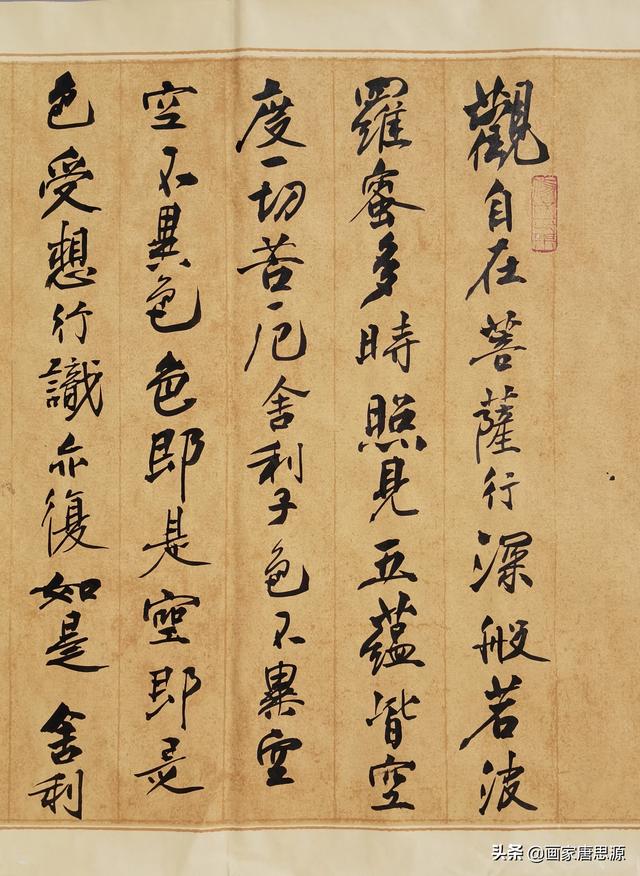 觀自在菩薩行深般若波
羅蜜多時照見五蘊皆空
度一切苦厄舍利子色不異空
空不異色色即是空空即是
色受想行識亦復如是舍利
头条 @画家唐思源